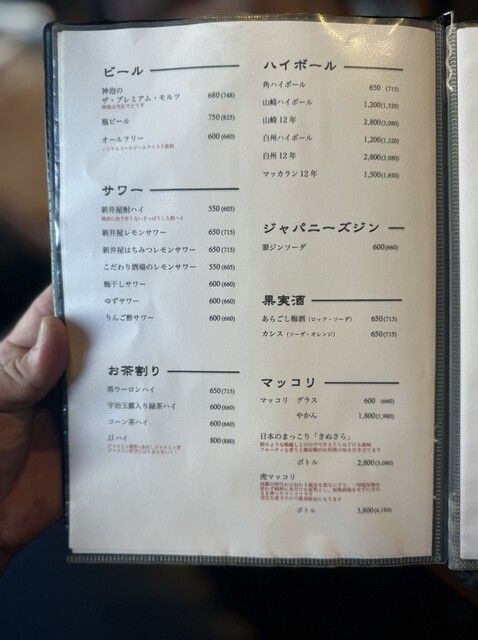 ビール
神泡の
ザ・プレミアム・モルツ 680(748)
瓶ビール 750(825)
オールフリー 600(660)
ノンアルコールビールテイスト飲料
サワー
新井屋酎ハイ 550(605)
新井屋レモンサワー 650(715)
新井屋はちみつレモンサワー 650(715)
こだわり酒場のレモンサワー 550(605)
梅干しサワー 600(660)
ゆずサワー 600(660)
りんご酢サワー 600(660)
お茶割り
黒ウーロンハイ 650(715)
宇治玉露入り緑茶ハイ 600(660)
コーン茶ハイ 600(660)
JJハイ 800(880)
ハイボール
角ハイボール 650 (715)
山崎ハイボール 1,200(1,320)
山崎12年 2,800(3,080)
白州ハイボール 1,200(1,320)
白州12年 2,800(3,080)
マッカラン12年 1,500(1,650)
ジャパニーズジン
翠ジンソーダ 600(660)
果実酒
あらごし梅酒(ロック・ソーダ) 650(715)
カシス(ソーダ・オレンジ) 650(715)
マッコリ
マッコリ グラス 600 (660)
やかん 1,800(1,980)
日本のまっこり「きぬさら」
ボトル 2,800(3,080)
虎マッコリ
ボトル 3,800(4,180)